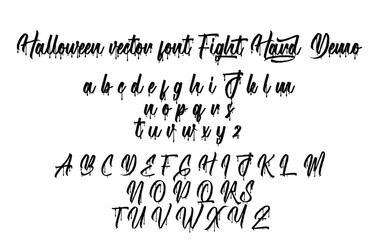 Halloween vector font Fight Hard Demo
a b c d e f g h i J k l m
n o p q r s
t u v w x y z
A B C D E F G H I J K L M
N O P Q R S
T U V W X Y Z